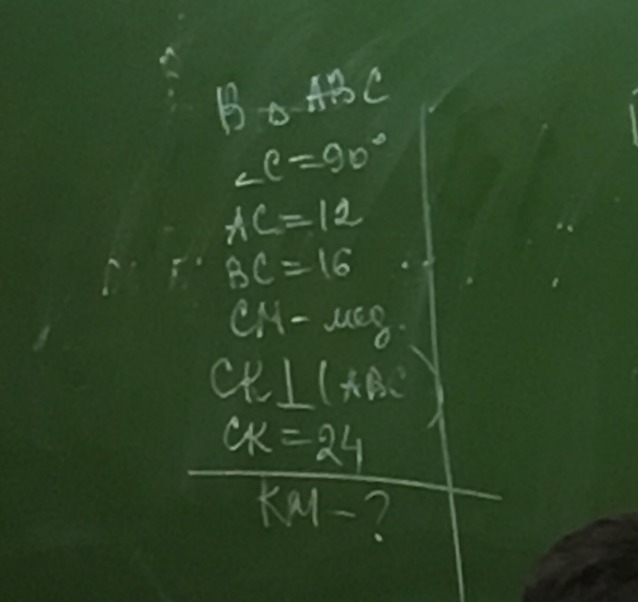 В △ ABC
∠C=90°
AC=12
BC=16
CM- мед.
CK⊥(ABC)
CK=24
KM-?